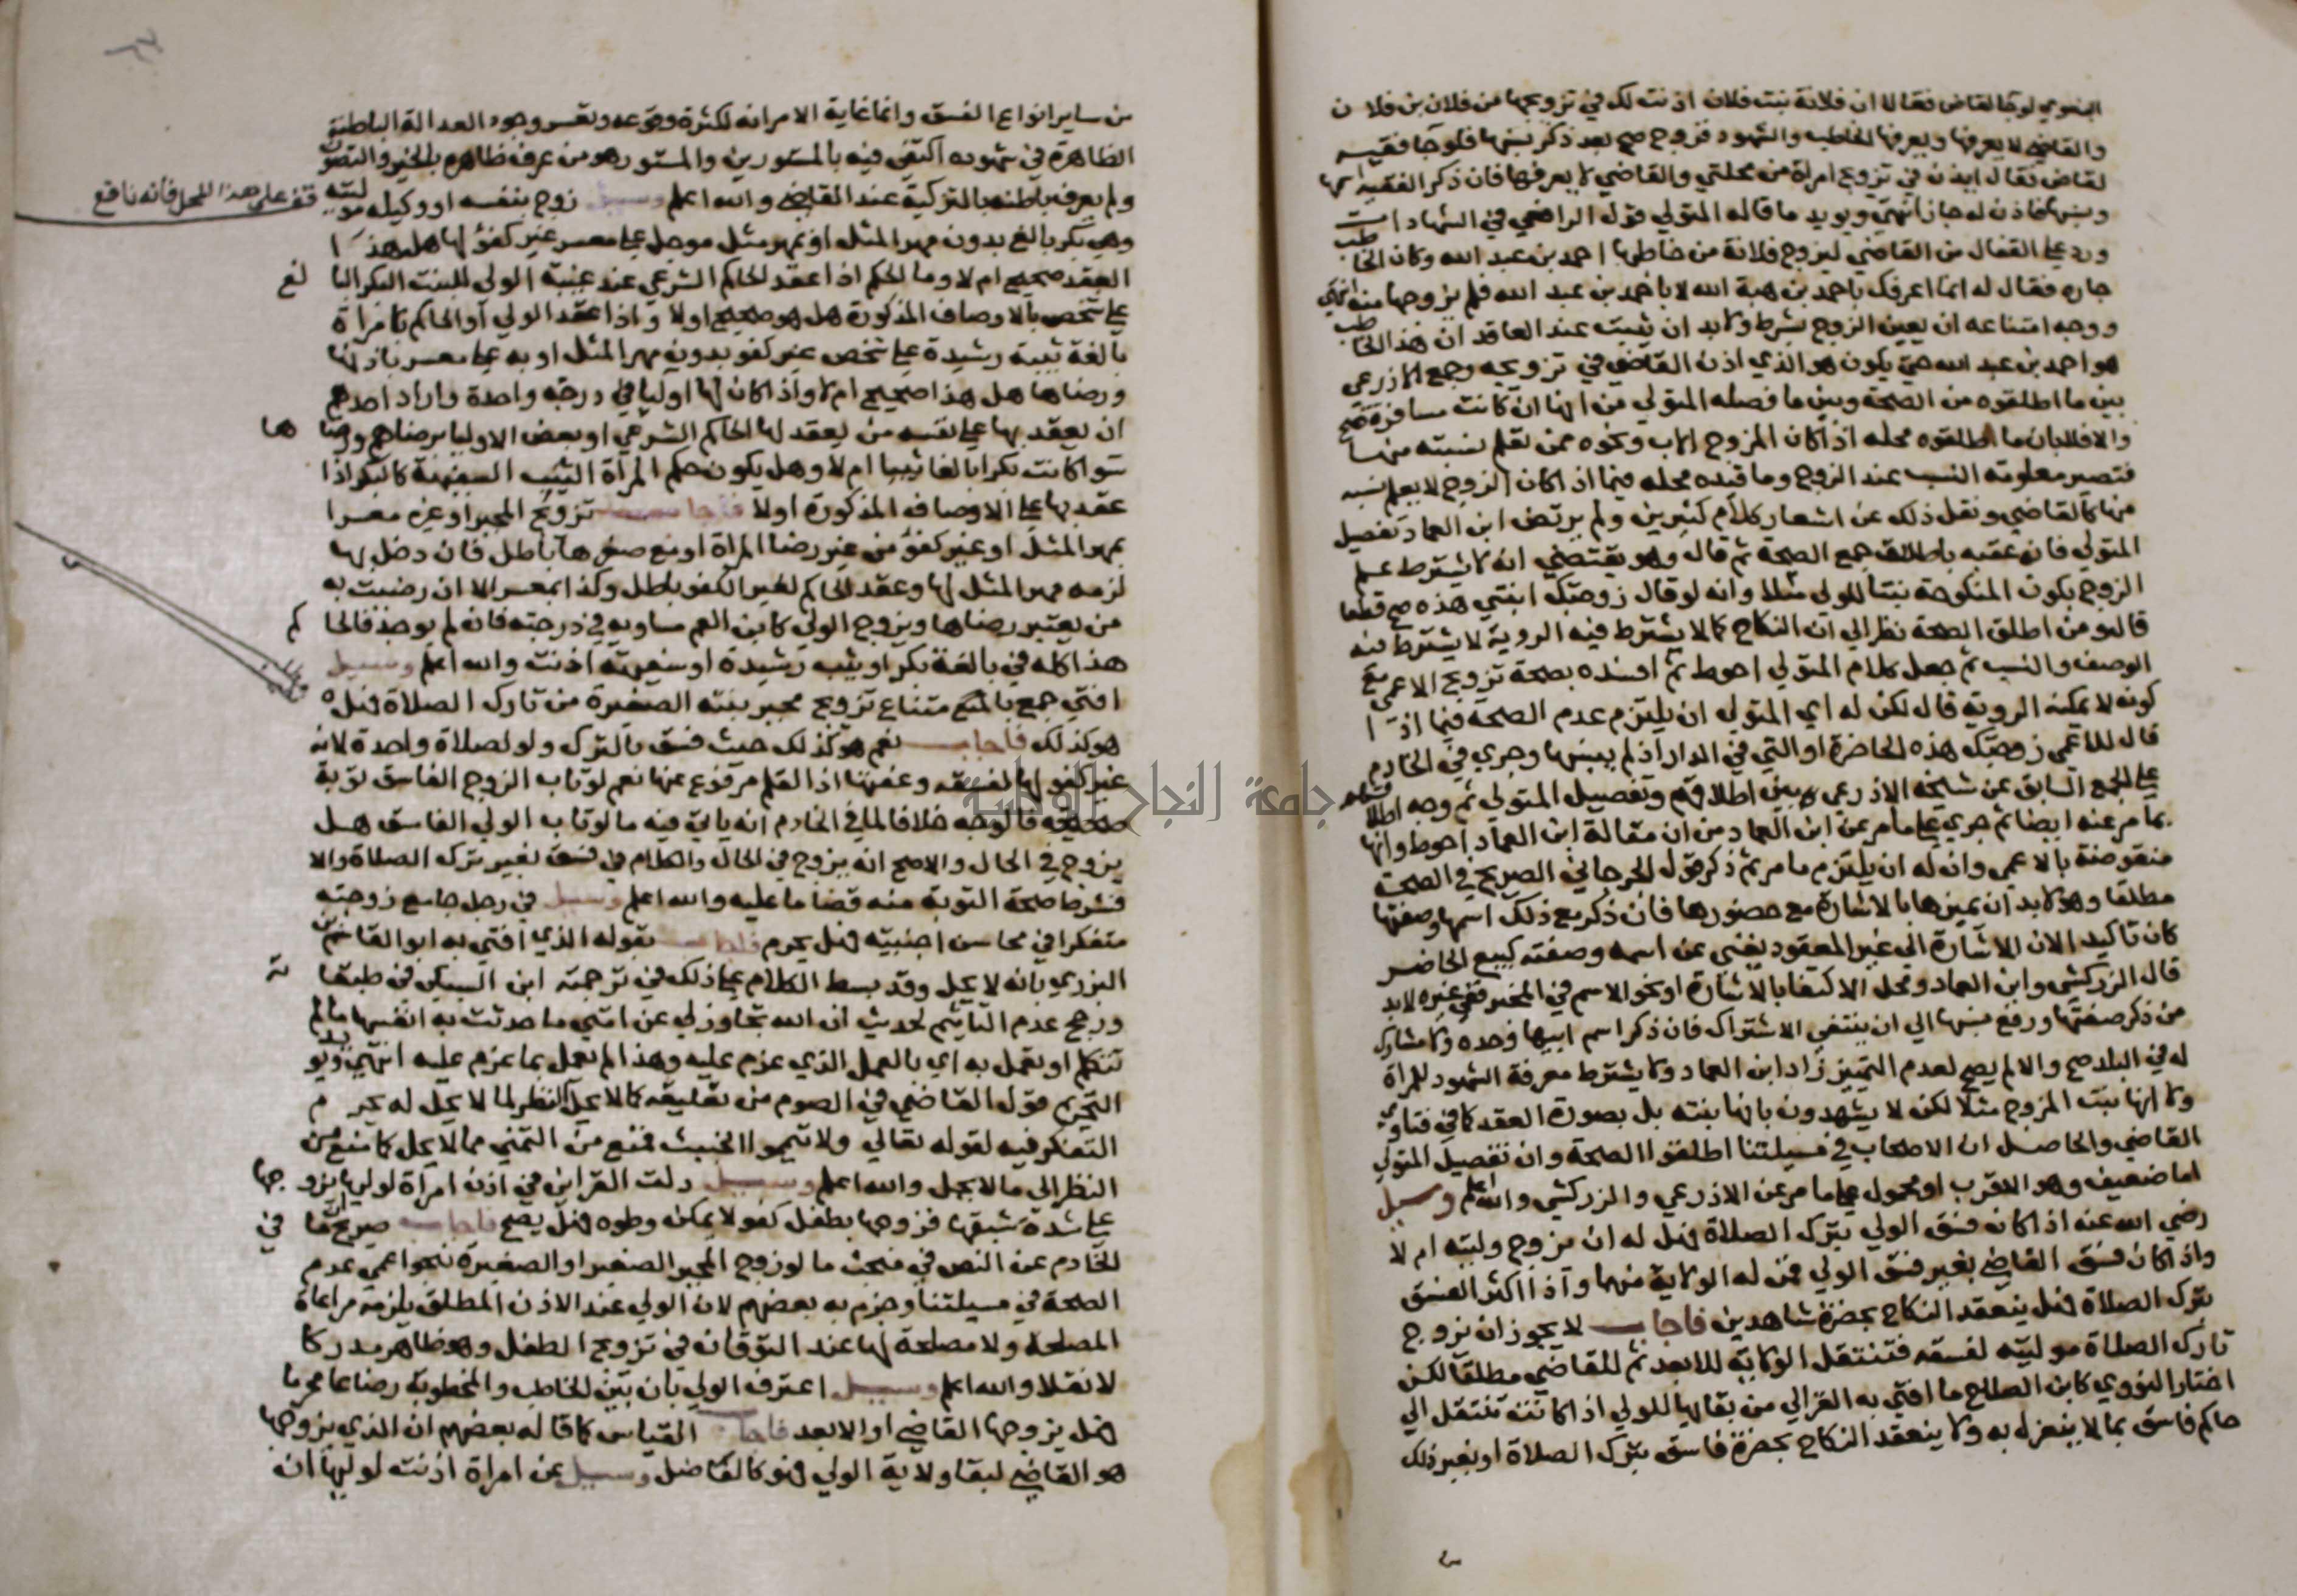 البغوي لو جا لقاض فقالا ان فلانة بنت فلان اذنت لك في تزويجها من فلان بن فلان
والقاضي لا يعرفها ويعرفها الخاطب والشهود فزوج صح بعد ذكر نسبها فلو جا فقيه
لقاض فقال ايذن في تزويج امراة من محلتي والقاضي لا يعرفها فان ذكر الفقيه اسمها
ونسبها فاذن له جاز انتهي ويويد ما قاله المتولي قول الرافعي في الشهادات
ورد علي القفال من القاضي ليزوج فلانة من خاطبها احمد بن عبد الله وكان الخاطب
جاره فقال له انما اعرفك باحمد بن هبة الله لا باحمد بن عبد الله فلم يزوجها منه انتهي
ووجه امتناعه ان يعين الزوج بشرط ولابد ان يثبت عند العاقد ان هذا الخاطب
هو احمد بن عبد الله حتي يكون هو الذي اذن القاضي في تزويجه وجمع الاذرعي
بين ما اطلقوه من الصحة وبين ما فصله المتولي من انها ان كانت مسافرة صح
والا فلا بان ما اطلقوه محله اذا كان المزوج الاب ونحوه ممن تعلم نسبته منها
فتصير معلومة النسب عند الزوج وما قيده محله فيما اذا كان الزوج لا يعلم نسبه
منها كالقاضي ونقل ذلك عن اشعار كلام كثيرين ولم يرتض ابن العماد تفصيل
المتولي فانه عقبه باطلاق جمع الصحة ثم قال وهو يقتضي انه لا يشترط علم
الزوج بكون المنكوحة بنتا للولي مثلا وانه لو قال زوجتك ابنتي هذه صح قطعا
قال ومن اطلق الصحة نظر الي ان النكاح كما لا يشترط فيه الروية لا يشترط فيه
الوصف والنسب ثم جعل كلام المتولي احوط ثم افسده بصحة تزويج الاعمي مع
كونه لا يمكنه الروية قال لكن له اي المتولي ان يلتزم عدم الصحه فيما اذا
قال للاعمي زوجتك هذه الحاضرة او التي في الدار اذ لم يبينها وجري في الخادم
علي الجمع السابق عن شيخه الاذرعي بين اطلاقهم وتفصيل المتولي ثم وجه اطلاقهم
بما مر عنه ايضا ثم جري علي ما مر عن ابن العماد من ان مقالة ابن العماد احوط وانها
منقوضة بالاعمي وان له ان يلتزم ما مر ثم ذكر قول الجرجاني الصريح في الصحة
مطلقا وهو لابد ان يميزها بالاشارة مع حضورها فان ذكر مع ذلك اسمها وصفتها
كان تاكيد الان الاشارة الي غير المعقود يغني عن اسمه وصفته كبيع الحاضر
قال الزركشي وابن العماد ومحل الاكتفا بالاشارة او نحو الاسم في المجبر ففي غيره لابد
من ذكر صفتها ورفع نسبها الي ان ينتفي الاشتراك فان ذكر اسم ابيها وحده ولا مشارك
له في البلد صح والا لم يصح لعدم التمييز زاد ابن العماد ولا يشترط معرفة الشهود للمراة
ولا انها بنت المزوج مثلا لكن لا يشهدون بانها بنته بل بصورة العقد كما في فتاوي
القاضي والحاصل ان الاصحاب في مسيلتنا اطلقوا الصحة وان تفصيل المتولي
اما ضعيف وهو الاقرب او محمول علي ما مر عن الاذرعي والزركشي والله اعلم وسيل
رضي الله عنه اذا كان فسق الولي بترك الصلاة فهل له ان يزوج وليته ام لا
واذا كان فسق القاضي بغير فسق الولي فمن له الولاية منهما واذا اكثر الفسق
بترك الصلاة فهل ينعقد النكاح بحضرة شاهدين فاجاب لا يجوز ان يزوج
تارك الصلاة موليته لفسقه فتنتقل الولاية للابعد ثم للقاضي مطلقا لكن
اختار النووي كابن الصلاح ما افتي به الغزالي من بقايها للولي اذا كانت تنتقل الي
حاكم فاسق بما لا ينعزل به ولا ينعقد النكاح بحضرة فاسق بترك الصلاة او بغير ذلك
من ساير انواع الفسق وانما غاية الامر انه لكثرة وقوعه وتعسر وجود العدالة الباطنة
الظاهرة في شهوده اكتفي فيه بالمستورين والمستور هو من عرف ظاهره بالخير والتصون
ولم يعرف باطنه بالتزكية عند القاضي والله اعلم وسيل زوج بنفسه او وكيله موليته
قف علي هذا المحل فانه نافع
وهي بكر بالغ بدون مهر المثل او بمهر مثل موجل علي معسر غير كفو لها هل هذا
العقد صحيح ام لا وما الحكم اذا عقد الحاكم الشرعي عند غيبة الولي للبنت البكر البالغ
علي شخص بالاوصاف المذكورة هل هو صحيح اولا واذا عقد الولي او الحاكم بامراة
بالغة ثيبة رشيدة علي شخص غير كفو بدون مهر المثل او به علي معسر باذنها
ورضاها هل هذا صحيح ام لا واذا كان لها اوليا في درجة واحدة واراد احدهم
ان يعقد بها علي نفسه من يعقد لها الحاكم الشرعي او بعض الاوليا برضاهم ورضاها
سوا كانت بكرا بالغا ثيبا ام لا وهل يكون حكم المراة الثيب السفيهة كالبكر اذا
عقد بها علي الاوصاف المذكورة اولا فاجاب تزويج المجبر او غيره معسرا
بمهر المثل او غير كفو من غير رضا المراة او مع صغرها باطل فان دخل بها
لزمه مهر المثل لها وعقد الحاكم لغير الكفو باطل وكذا بمعسر الا ان رضيت به
من يعتبر رضاها ويزوج الولي كابن العم مساويه في درجته فان لم يوجد فالحاكم
هذا كله في بالغة بكر او ثيب رشيدة او سفيهة اذنت والله اعلم وسيل
افتي جمع بامتناع تزويج مجبر بنته الصغيرة من تارك الصلاة فهل
هو كذلك فاجاب نعم هو كذلك حيث فسق بالترك ولو لصلاة واحدة لانه
غير كفو لها لفسقه وعفتها اذ القلم مرفوع عنها نعم لو تاب الزوج الفاسق توبة
صحيحه فالوجه خلافا لما في الخادم انه ياتي فيه ما لو تاب الولي الفاسق هل
يزوج في الحال والاصح انه يزوج في الحال والكلام في فسق بغير ترك الصلاة والا
فشرط صحة التوبة منه قضا ما عليه والله اعلم وسيل في رجل جامع زوجته
متفكرا في محاسن اجنبيه فهل يحرم فاجاب بقوله الذي افتي به ابو القاسم بن
البزري بانه لا يحل وقد بسط الكلام علي ذلك في ترجمته ابن السبكي في طبقاته
ورجح عدم التاثيم لحديث ان الله تجاوز لي عن امتي ما حدثت به انفسها ما لم
تتكلم او تعمل به اي بالعمل الذي عزم عليه وهذا لم يعمل بما عزم عليه انتهي ويويد
التحريم قول القاضي في الصوم من تعليقه كما لا يحل النظر لما لا يحل له يحرم
التفكر فيه لقوله تعالي ولا تيمموا الخبيث فمنع من التمني مما لا يحل كما منع من
النظر الي ما لا يحل والله اعلم وسيل دلت القراين في اذن امراة لوليها يزوجها
علي شدة شبقها فزوجها بطفل كفو لا يمكن وطوه فهل يصح فاجاب صريح ما في
الخادم عن النص في مبحث ما لو زوج المجبر الصغير او الصغيرة بنحو اعمي عدم
الصحة في مسيلتنا وجزم به بعضهم لان الولي عند الاذن المطلق يلزمه مراعاة
المصلحة ولا مصلحة لها عند التوقان في تزويج الطفل وهو ظاهر مدركا
لا نقلا والله اعلم وسيل اعترف الولي بان بين الخاطب والمخطوبة رضاعا محرما
فهل يزوجها القاضي او الابعد فاجاب القياس كما قاله بعضهم ان الذي يزوجها
هو القاضي لبقا ولاية الولي فهو كالعاضل وسيل عن امراة اذنت لوليها ان
جامعة النجاح الوطنية